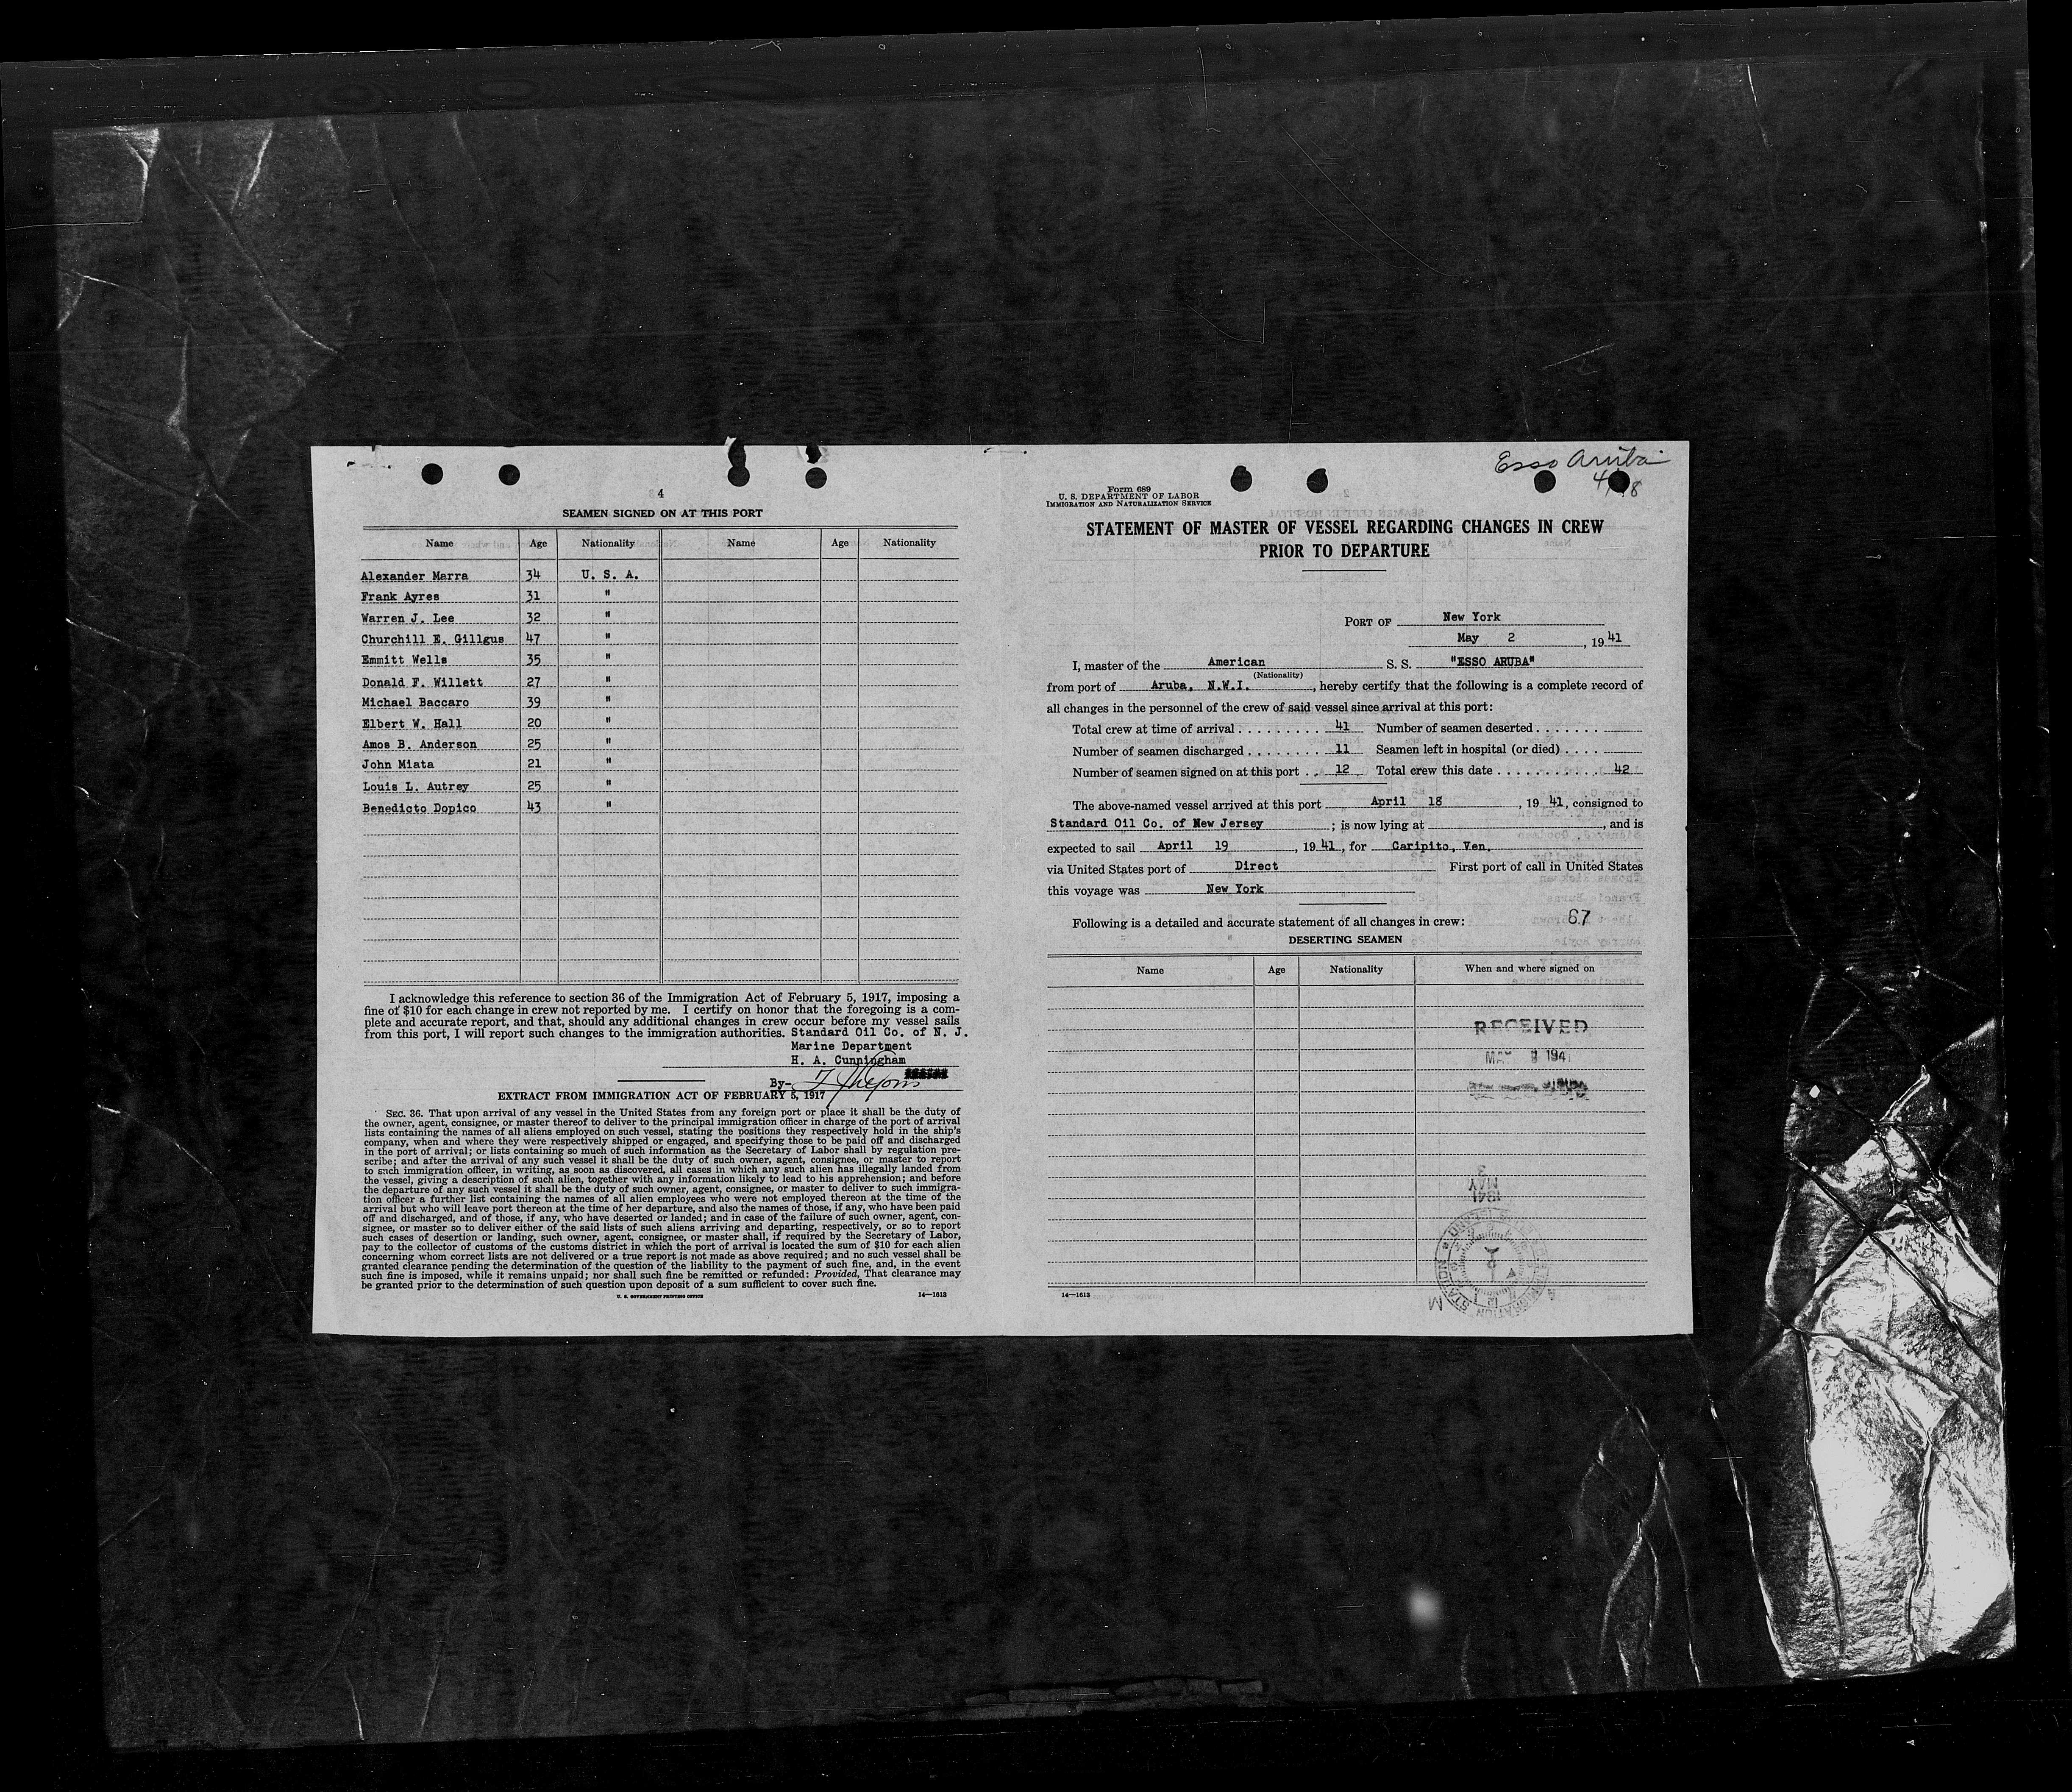 4
SEAMEN SIGNED ON AT THIS PORT
Name Age Nationality Name Age Nationality
Alexander Marra 34 U. S. A.
Frank Ayres 31 "
Warren J. Lee 32 "
Churchill E. Gillgus 47 "
Emmitt Wells 35 "
Donald F. Willett 27 "
Michael Baccaro 39 "
Elbert W. Hall 20 "
Amos B. Anderson 25 "
John Miata 21 "
Louis L. Autrey 25 "
Benedicto Dopico 43 "
I acknowledge this reference to section 36 of the Immigration Act of February 5, 1917, imposing a
fine of $10 for each change in crew not reported by me. I certify on honor that the foregoing is a com-
plete and accurate report, and that, should any additional changes in crew occur before my vessel sails
from this port, I will report such changes to the immigration authorities. Standard Oil Co. of N. J.
Marine Department
H. A. Cunningham
By-
EXTRACT FROM IMMIGRATION ACT OF FEBRUARY 5, 1917
SEC. 36. That upon arrival of any vessel in the United States from any foreign port or place it shall be the duty of
the owner, agent, consignee, or master thereof to deliver to the principal immigration officer in charge of the port of arrival
lists containing the names of all aliens employed on such vessel, stating the positions they respectively hold in the ship's
company, when and where they were respectively shipped or engaged, and specifying those to be paid off and discharged
in the port of arrival; or lists containing so much of such information as the Secretary of Labor shall by regulation pre-
scribe; and after the arrival of any such vessel it shall be the duty of such owner, agent, consignee, or master to report
to such immigration officer, in writing, as soon as discovered, all cases in which any such alien has illegally landed from
the vessel, giving a description of such alien, together with any information likely to lead to his apprehension; and before
the departure of any such vessel it shall be the duty of such owner, agent, consignee, or master to deliver to such immigra-
tion officer a further list containing the names of all alien employees who were not employed thereon at the time of the
arrival but who will leave port thereon at the time of her departure, and also the names of those, if any, who have been paid
off and discharged, and of those, if any, who have deserted or landed; and in case of the failure of such owner, agent, con-
signee, or master so to deliver either of the said lists of such aliens arriving and departing, respectively, or so to report
such cases of desertion or landing, such owner, agent, consignee, or master shall, if required by the Secretary of Labor,
pay to the collector of customs of the customs district in which the port of arrival is located the sum of $10 for each alien
concerning whom correct lists are not delivered or a true report is not made as above required; and no such vessel shall be
granted clearance pending the determination of the question of the liability to the payment of such fine, and, in the event
such fine is imposed, while it remains unpaid; nor shall such fine be remitted or refunded: Provided, That clearance may
be granted prior to the determination of such question upon deposit of a sum sufficient to cover such fine.
U. S. GOVERNMENT PRINTING OFFICE 14—1613
Esso Aruba
Form 689
U. S. DEPARTMENT OF LABOR
IMMIGRATION AND NATURALIZATION SERVICE
STATEMENT OF MASTER OF VESSEL REGARDING CHANGES IN CREW
PRIOR TO DEPARTURE
PORT OF New York
May 2, 1941
I, master of the American S. S. "ESSO ARUBA"
(Nationality)
from port of Aruba, N.W.I., hereby certify that the following is a complete record of
all changes in the personnel of the crew of said vessel since arrival at this port:
Total crew at time of arrival . . . . . . . . . 41 Number of seamen deserted . . . . . . .
Number of seamen discharged . . . . . . . 11 Seamen left in hospital (or died) . . . .
Number of seamen signed on at this port . . 12 Total crew this date . . . . . . . . . . . 42
The above-named vessel arrived at this port April 18, 1941, consigned to
Standard Oil Co. of New Jersey; is now lying at , and is
expected to sail April 19, 1941, for Caripito, Ven.
via United States port of Direct First port of call in United States
this voyage was New York
Following is a detailed and accurate statement of all changes in crew: 67
DESERTING SEAMEN
Name Age Nationality When and where signed on
RECEIVED
MAY 194
MAY
1941
14—1613